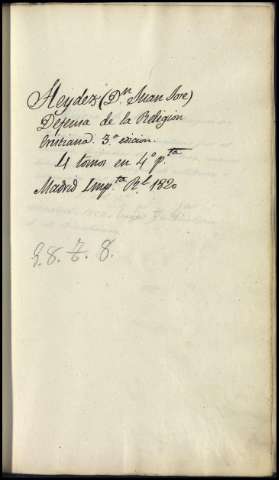 Heydez (Dn Juan Jose)
Defensa de la Religion
Cristiana. 3a edicion.
4 tomos en 4o pta
Madrid Impta Rl 1820
8. 8.